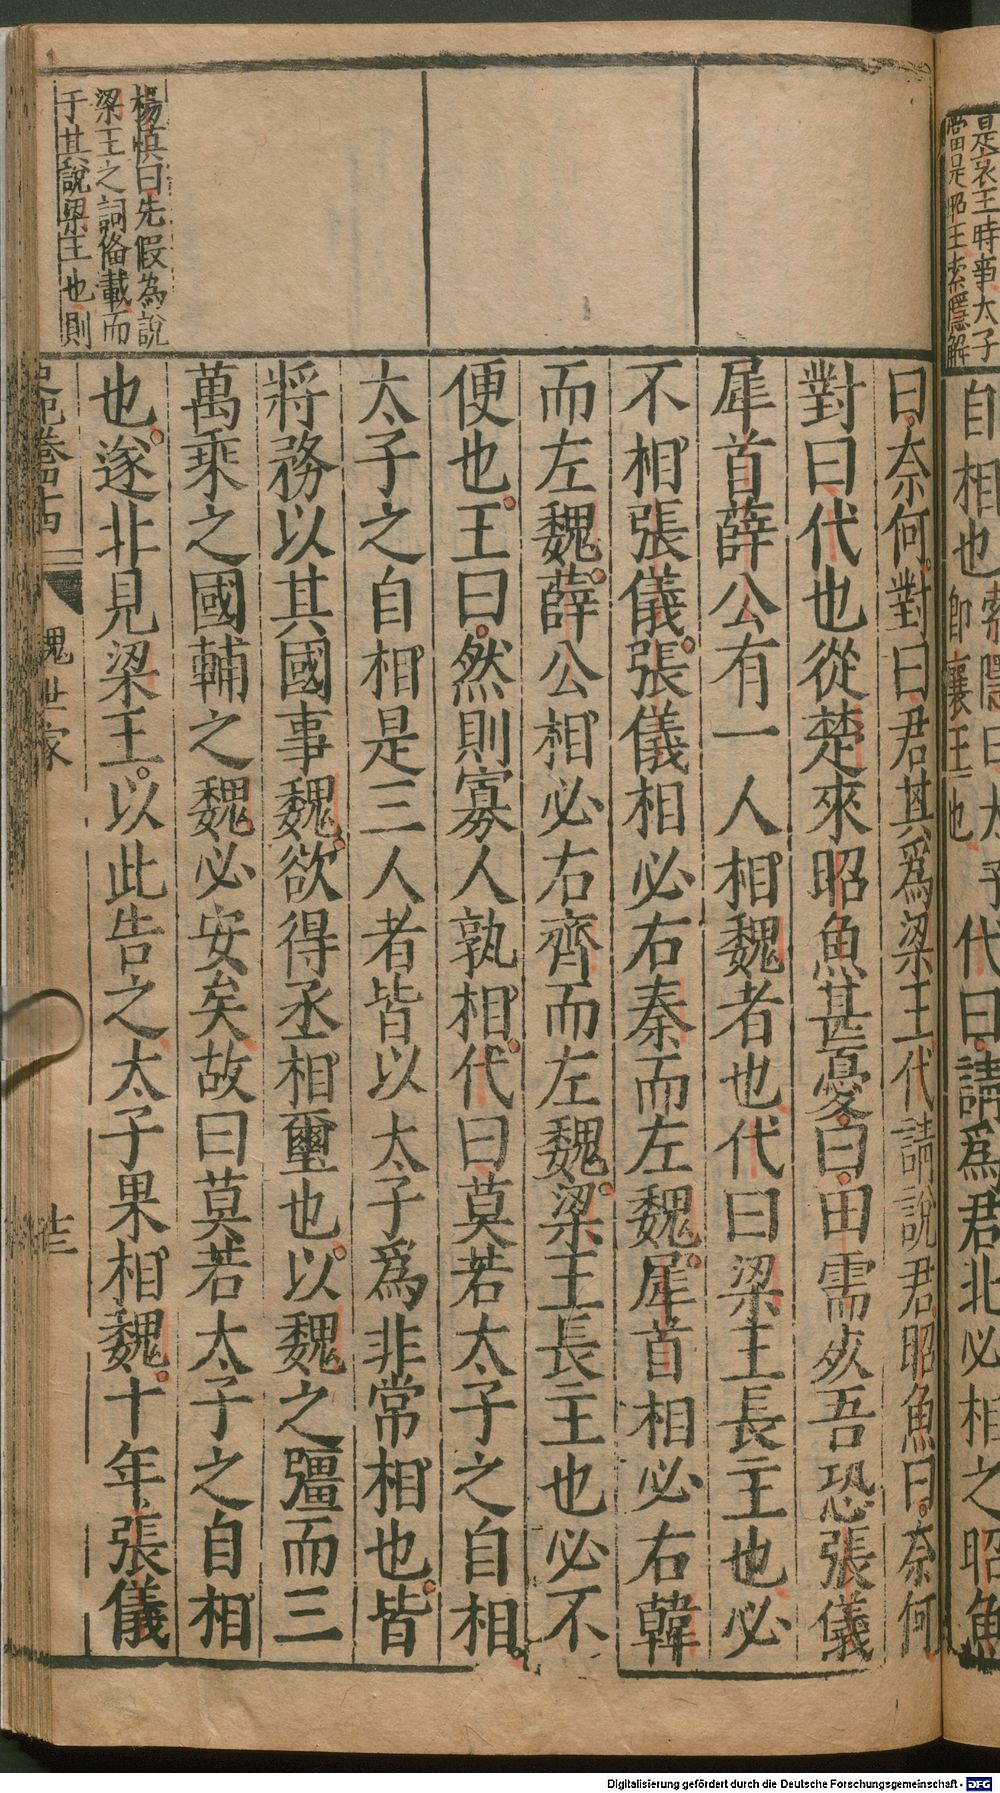 是哀王時事太子
當是昭王索隱解
自相也
索隱曰太子
即襄王也
代曰請爲君北必相之昭魚
曰奈何對曰君其爲梁王代請說君昭魚曰奈何
對曰代也從楚來昭魚甚憂曰田需死吾恐張儀
犀首薛公有一人相魏者也代曰梁王長主也必
不相張儀張儀相必右秦而左魏犀首相必右韓
而左魏薛公相必右齊而左魏梁王長主也必不
便也王曰然則寡人孰相代曰莫若太子之自相
太子之自相是三人者皆以太子爲非常相也皆
將務以其國事魏欲得丞相璽也以魏之彊而三
萬乘之國輔之魏必安矣故曰莫若太子之自相
也遂北見梁王以此告之太子果相魏十年張儀
楊慎曰先假為說
梁王之詞俻載而
于其說梁王也則
魏世家
廿三
Digitalisierung gefördert durch die Deutsche Forschungsgemeinschaft - DFG